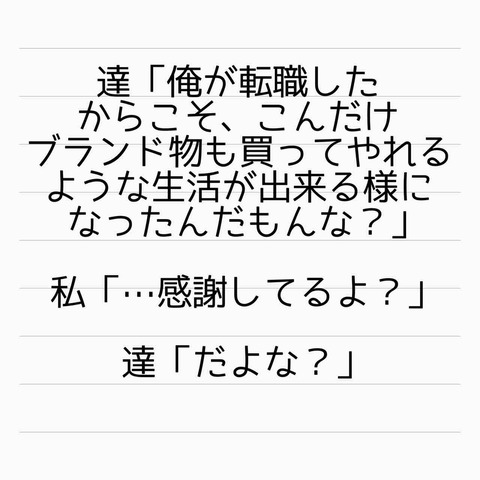 達「俺が転職した
からこそ、こんだけ
ブランド物も買ってやれる
ような生活が出来る様に
なったんだもんな？」
私「…感謝してるよ？」
達「だよな？」